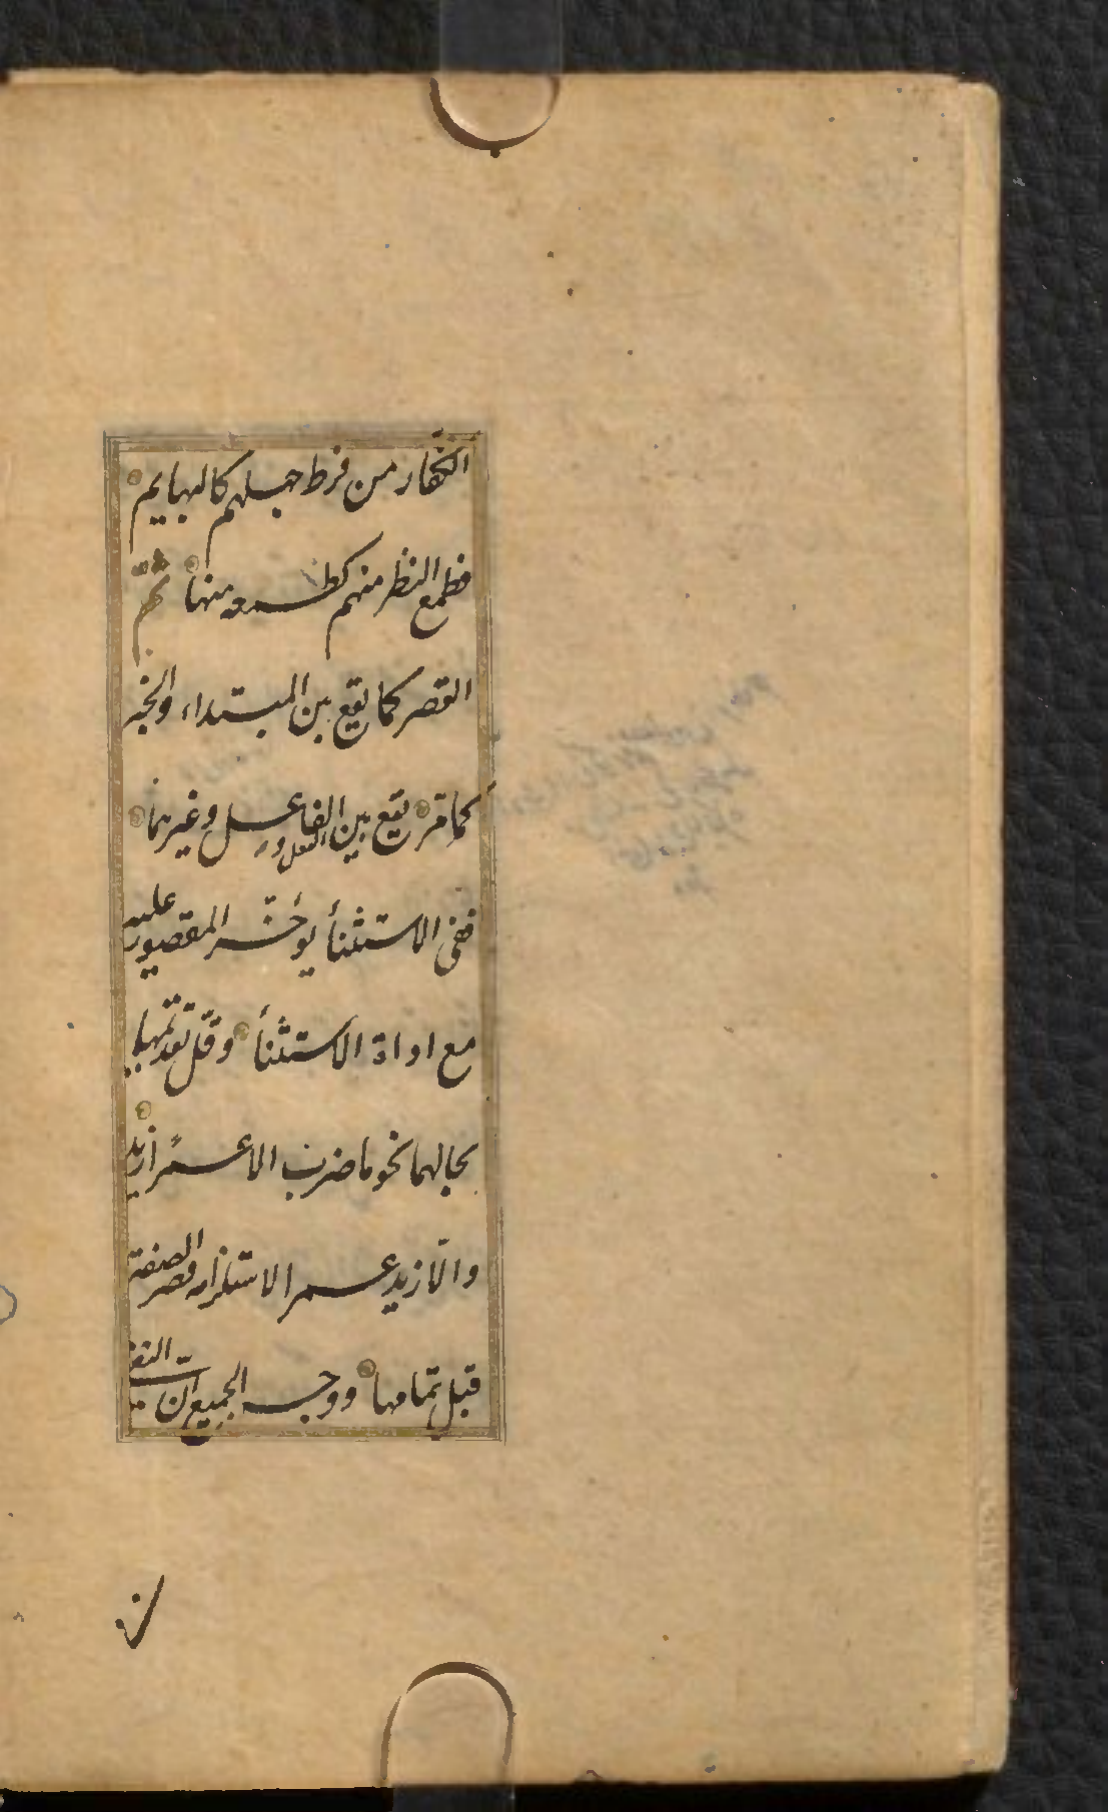 الكفار من فرط جهلهم كالبهايم
فطمع النظر منهم كطمعه منها ثم
القصر كما يقع بين المبتداء والخبر
كما مر يقع بين الفعل والفاعل وغيرهما
ففى الاستثنأ يؤخّر المقصور عليه
مع اداة الاستثنأ وقلّ تقديمهما
بحالهما نحو ما ضرب الا عمرًا زيد
والّا زيد عمرا لاستلزامه قصر الصفة
قبل تمامها ووجه الجميع انّ النفى